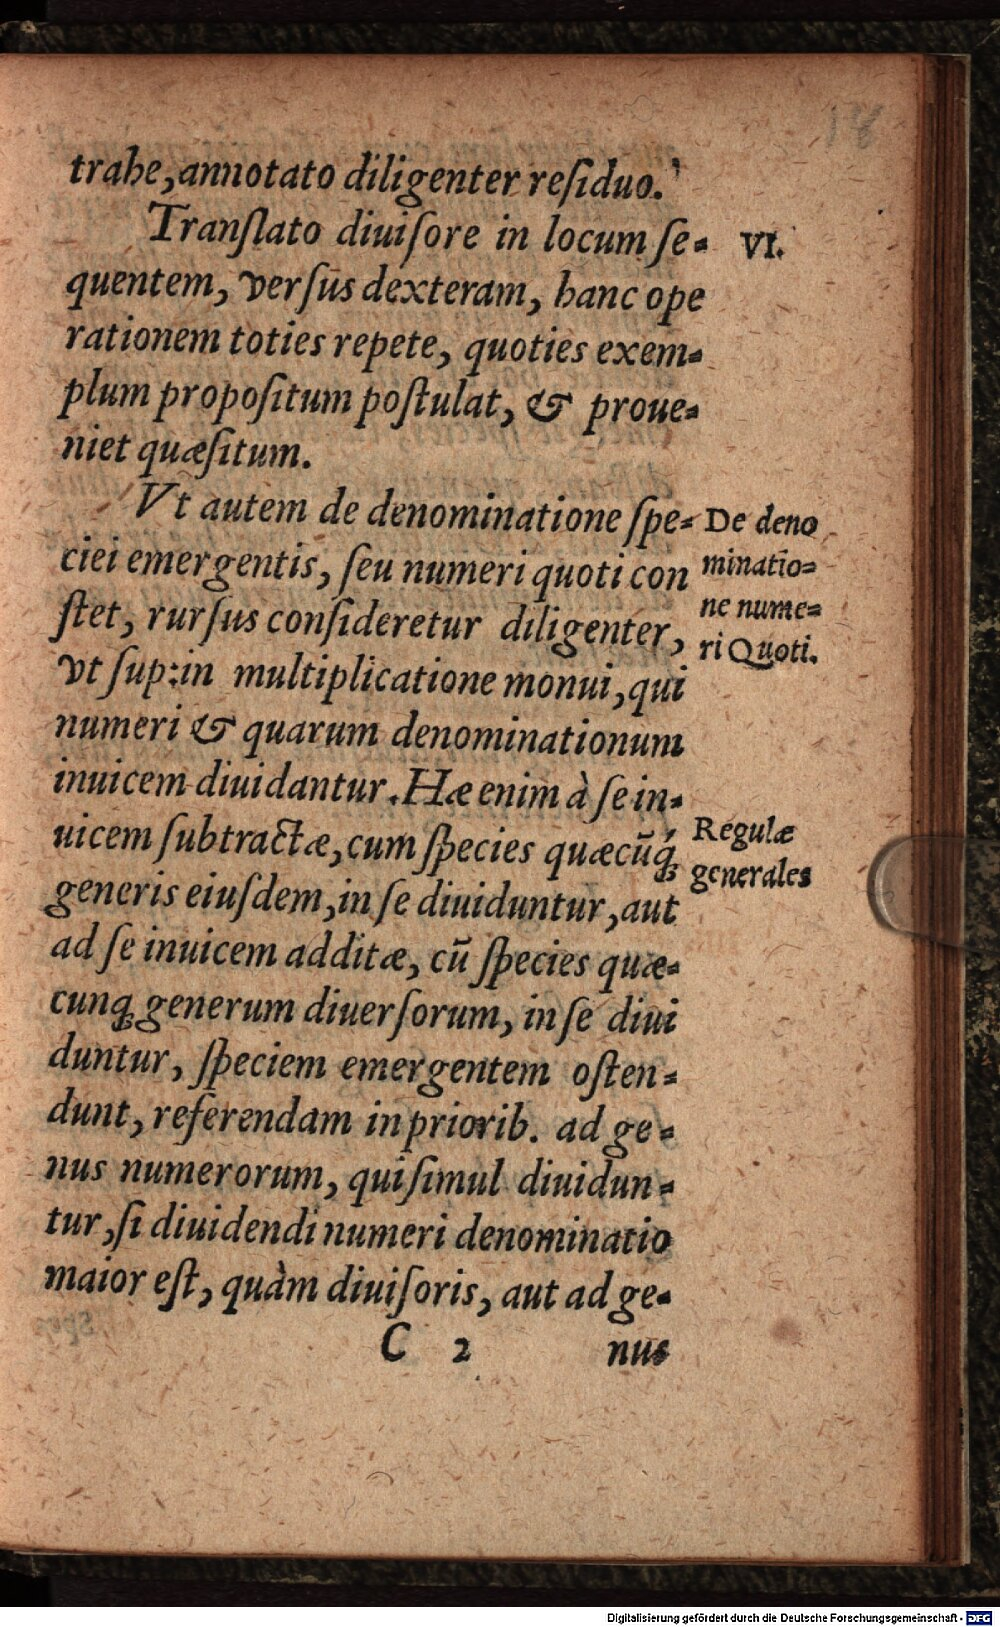 18
trahe, annotato diligenter reſiduo.
Tranſlato diuiſore in locum ſe-
VI.
quentem, verſus dexteram, hanc ope
rationem toties repete, quoties exem-
plum propoſitum poſtulat, & proue-
niet quæſitum.
Vt autem de denominatione ſpe-
ciei emergentis, ſeu numeri quoti con
ſtet, rurſus conſideretur diligenter,
vt ſup:in multiplicatione monui, qui
numeri & quarum denominationum
inuicem diuidantur. Hæ enim à ſe in-
uicem ſubtractæ, cum ſpecies quæcūq́;
generis eiuſdem, in ſe diuiduntur, aut
ad ſe inuicem additæ, cū ſpecies quæ-
cunq; generum diuerſorum, in ſe diui
duntur, ſpeciem emergentem oſten-
dunt, referendam in priorib. ad ge-
nus numerorum, qui ſimul diuidun-
tur, ſi diuidendi numeri denominatio
maior eſt, quàm diuiſoris, aut ad ge-
De deno
minatio-
ne nume-
ri Quoti.
Regulæ
generales
C 2
nus
Digitalisierung gefördert durch die Deutsche Forschungsgemeinschaft - DFG